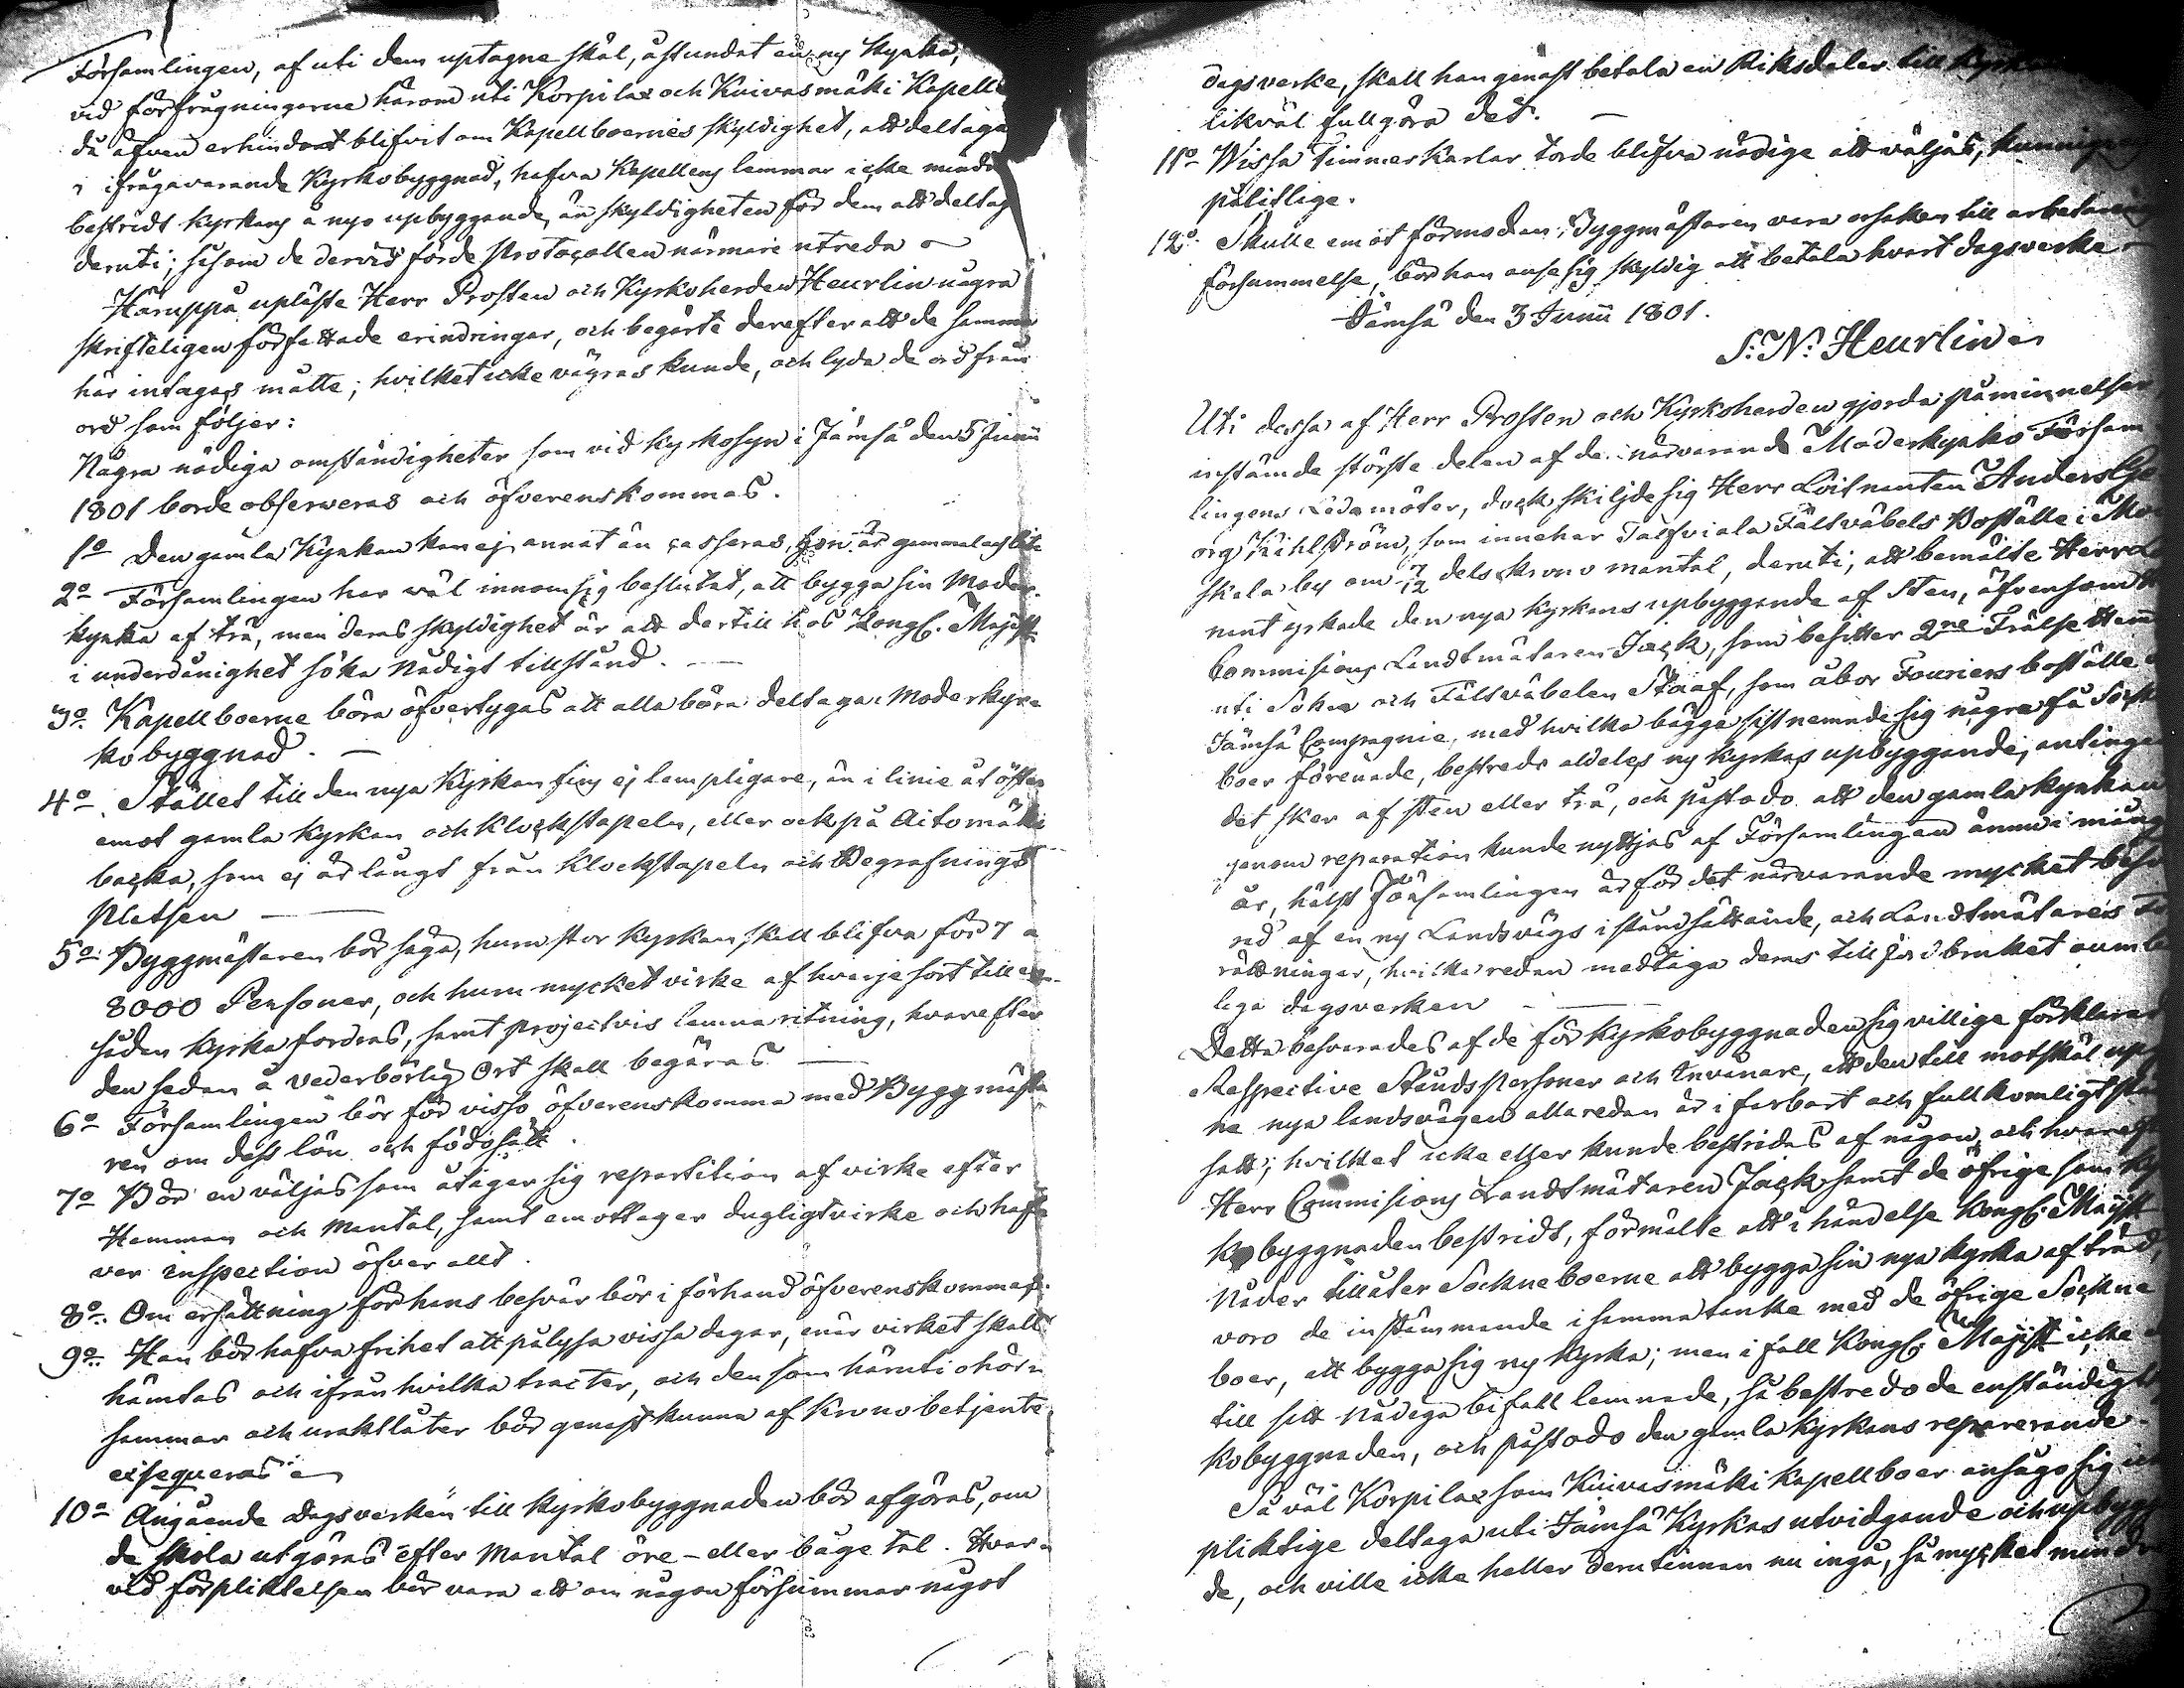 Församlingen, af uti dem uptagne skäl, åstundat en ny Kyrka,
vid förfrågningarne härom uti Korpilax och Kuivasmäki Kapell
då äfven erhindrat blifvit om Kapellboernes skyldighet, att deltaga
i ifrågavarande Kyrkobyggnad, hafva Kapellens lemmar icke mindre
bestridt Kyrkans å nyo upbyggande, än skyldigheten för dem att deltaga
deruti; såsom de dervid förde Protocollen närmare utreda
Häruppå upläste Herr Prosten och Kyrkoherden Heurlin några
skrifteligen författade erindringar, och begärte derefter att de samma
här intagas måtte; hvilket icke vägras kunde, och lyda de ord från
ord som följer:
Några nödiga omständigheter som vid Kyrkosyn i Jämsä den 5 Junii
1801 borde observeras och öfverenskommas.
1o Den gamla Kyrkan kan ej annat än casseras, hon är gammal och
2o Församlingen har wäl innom sig beslutat, att bygga sin Moder-
kyrka af trä, men deras skyldighet är att dertill hos Kongl. Majist
i underdånighet söka Nådigt tillstånd.
3o Kapellboerne böra öfvertygas att alla böra deltaga i Moderkyr-
kobyggnad.
4o Stället till den nya Kyrkan fins ej lämpligare, än i linie åt öster
emot gamla Kyrkan och Klockstapeln, eller ock på Aitomäki
backa, som ej är långt från Klockstapeln och Begrafnings
platsen
5o Byggmästaren bör säga, huru stor Kyrkan skall blifva för 7 a
8000 Personer, och huru mycket virke af hvarje sort till en
sådan Kyrka fordras, samt projectvis lemna ritning, hvarefter
den sedan å vederbörlig Ort skall begäras.
6o Församlingen bör för visso öfverenskomma med Byggmästa
ren om dess lön och födosätt.
7o Bör en väljas som åtager sig repartition af virke efter
Hemman och Mantal, samt emottager dugligt virke och haf
ver inspection öfver allt.
8o Om ersättning för hans besvär bör i förhand öfverenskommas.
9o Han bör hafva frihet att pålysa vissa dagar, när virket skall
hämtas och ifrån hvilka tracter, och den som häruti ohör-
sammar och uraktlåter bör genast kunna af Kronobetjente
exsequeras
10o Angående Dagsverken till Kyrkobyggnaden bör afgöras, om
de skola utgöras efter Mantal öre- eller båge tal. Hvar-
vid förpliktelsen bör vara att om någon försummar något
dagsverke, skall han genast betala en Riksdaler till
likväl fullgöra det.
11o Wissa Timmerkarlar torde blifva nödige att väljas,
pålitlige.
12o Skulle emot förmodan, Byggmästaren vara orsaken till
försummelse, bör han anse sig skyldig att betala hvart dagsverke
Jämsä den 3 Junii 1801.
S: N: Heurlin
Uti dessa af Herr Prosten och Kyrkoherden gjorda påminnelser
instämde största delen af de närvarande Moderkyrko Försam
lingens Ledamöter, dock skiljde sig Herr Löitnanten Anders Ge
org Kihlström, som innehar Fältväbels Boställe i
skala by om 7/12 dels krono mantal, deruti, att bemälte Herr
nant yrkade den nya Kyrkans upbyggande af Sten, äfvensom
Commisions Landtmätaren Jack, som besitter 2ne Frälse Hem
uti och Fältväbelen Staaf, som åbor Fouriers boställe
Jämsä Compagnie, med hvilka bägge sistnemnde sig några få Sock
boer förenade, bestredo aldeles ny Kyrkas upbyggande, antingen
det sker af sten eller trä, och påstodo att den gamla Kyrkan
genom reparation kunde nyttjas af Församlingen ännu i många
år, hälst Församlingen är för det närvarande mycket besvä
rad af en ny Landsvägs iståndsättande, och Landtmätares För
rättningar, hvilka redan medtaga deras till jordbruket
liga dagsverken
Detta besvarades af de för Kyrkobyggnaden sig villige förklarad
Respective Ståndspersoner och Invånare, att den till motskäl
na nya landsvägen allaredan är i farbart och fullkomligt
satt; hvilket icke eller kunde bestridas af någon, och
Herr Commisions Landtmätaren Jack samt de öfrige som Ky
kobyggnaden bestridt, förmälte att i händelse Kongl. Majst
Nåder tillåter Sockneboerne att bygga sin nya Kyrka af träd,
voro de instämmande i samma tanke med de öfrige Sockne
boer, att bygga sig ny Kyrka; men i fall Kongl. Majst icke
till sitt Nådiga bifall lemnade, så bestredo de enständigt
kobyggnaden, och påstodo den gamla Kyrkans reparerande.
Så väl Korpilax som Kuivasmäki Kapellboer ansågo sig
pliktige deltaga uti Jämsä Kyrkas utvidgande och upbygg
de, och ville icke heller derutinnan nu ingå, så mycket mindre